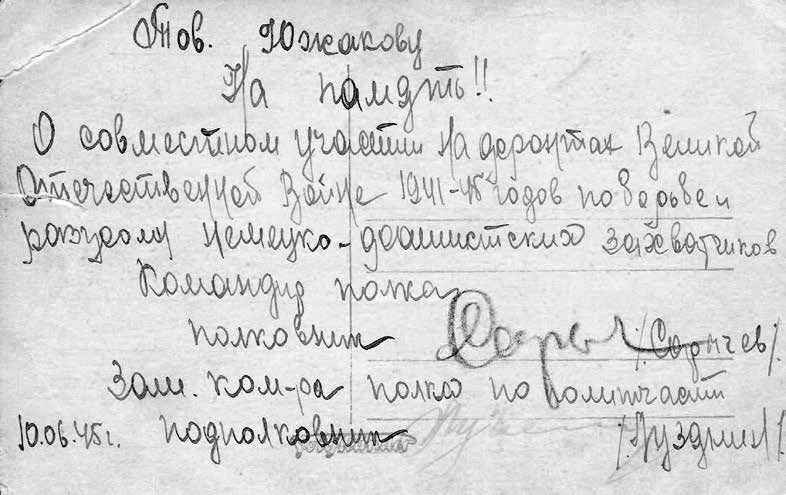 Тов. Южакову
На память!!
О совместном участии на фронтах Великой
Отечественной Войне 1941-45 годов по борьбе и
разгрому немецко-фашистских захватчиков
Командир полка
полковник /Сарычев/
Зам. ком-ра полка по политчасти
10.06.45г. подполковник